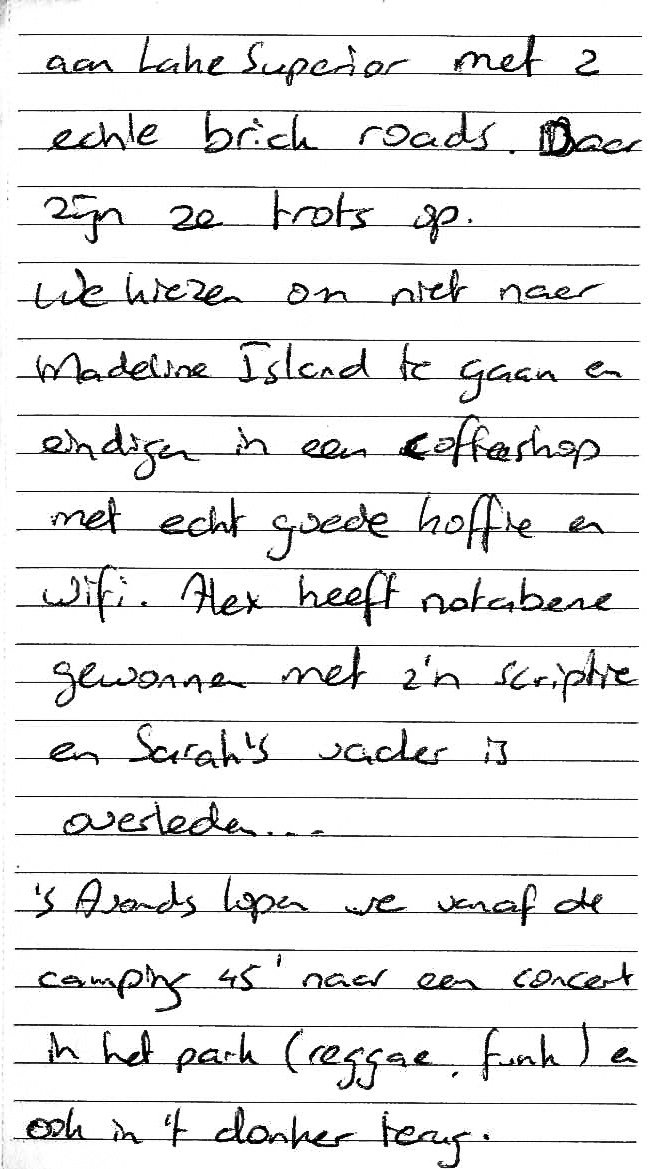 aan Lake Superior met 2
echte brick roads. Daar
zijn ze trots op.
We kiezen om niet naar
Madeline Island te gaan en
eindigen in een coffeeshop
met echt goede koffie en
Wifi. Alex heeft notabene
gewonnen met z'n scriptie
en Sarah's vader is
overleden....
's Avonds lopen we vanaf de
camping 45' naar een concert
in het park (reggae, funk) en
ook in 't donker terug.